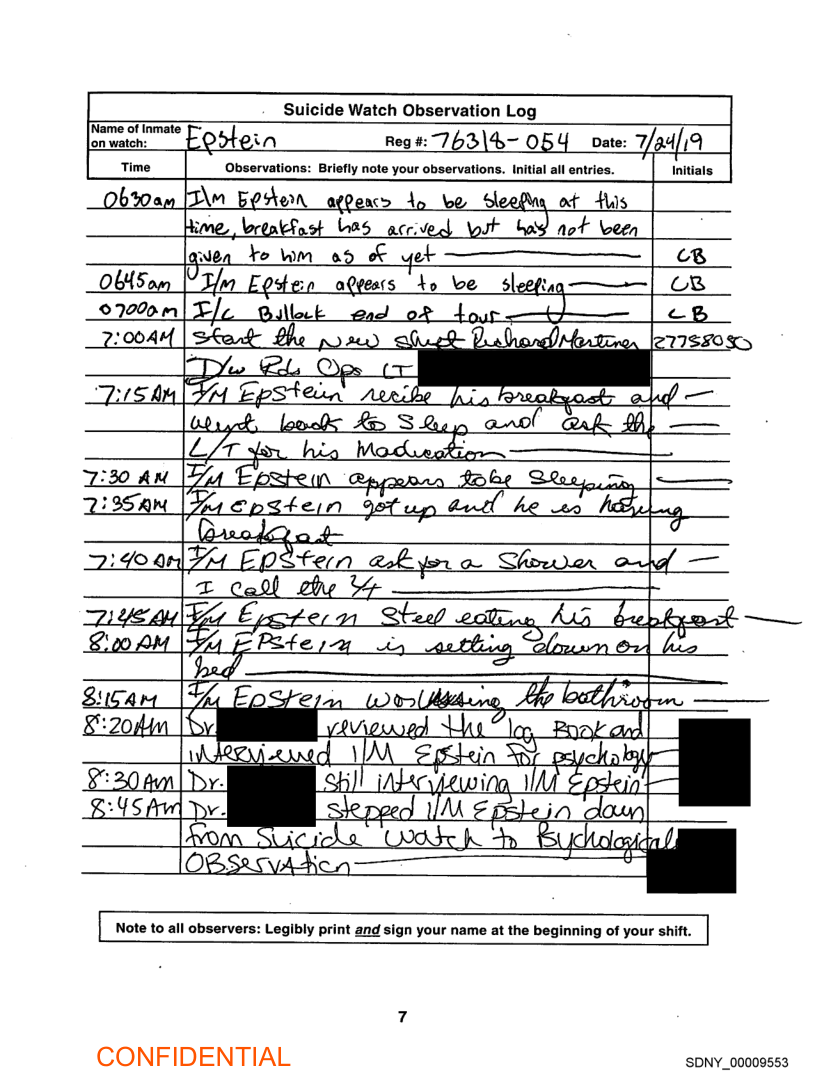 Suicide Watch Observation Log
Name of Inmate on watch: Epstein Reg #: 76318-054 Date: 7/24/19
Time Observations: Briefly note your observations. Initial all entries. Initials
0630am I\M Epstein appears to be sleeping at this
time, breakfast has arrived but has not been
given to him as of yet CB
0645am I/M Epstein appears to be sleeping CB
0700am I/C Bullock end of tour CB
7:00AM Start the New Shift Richard Martinez 27758050
D/w Rds Ops LT
7:15AM I/M EPStein recibe his breakfast and
went back to Sleep and ask the
L/T for his Madication
7:30 AM I/M EPstein appears to be Sleeping
7:35AM I/M EPStein got up and he is having
breakfast
7:40AM I/M EPStein ask for a Shower and
I call the L/t
7:45AM I/M Epstein Steel eating his breakfast
8:00AM I/M EPStein is setting down on his
bed
8:15AM I/M EPStein was using the bathroom
8:20AM Dr. reviewed the log BOOK and
interviewed I/M Epstein for psychology
8:30AM Dr. Still interviewing I/M Epstein
8:45AM Dr. stepped I/M Epstein down
from Suicide Watch to Psychological
OBSERVAtion
Note to all observers: Legibly print and sign your name at the beginning of your shift.
7
CONFIDENTIAL
SDNY_00009553